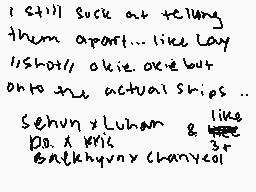 i still suck at telling
them apart... like Lay
"shot" okie. okie but
onto the actual ships ..
Sehun x Luhan & like
D.o. x kris 3+
Baekhyun x Chanyeol